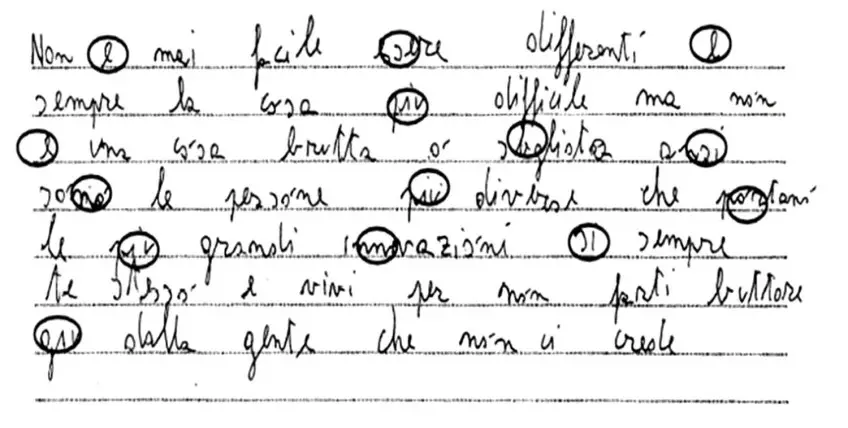 Non e mai facile essere differenti e
sempre la cosa piu difficile ma non
e una cosa brutta o sbgliata anzi
sono le persone piu diverse che portani
le piu grandi innovazioni si sempre
te stesso e vivi per non farti buttare
giu dalla gente che non ci crede